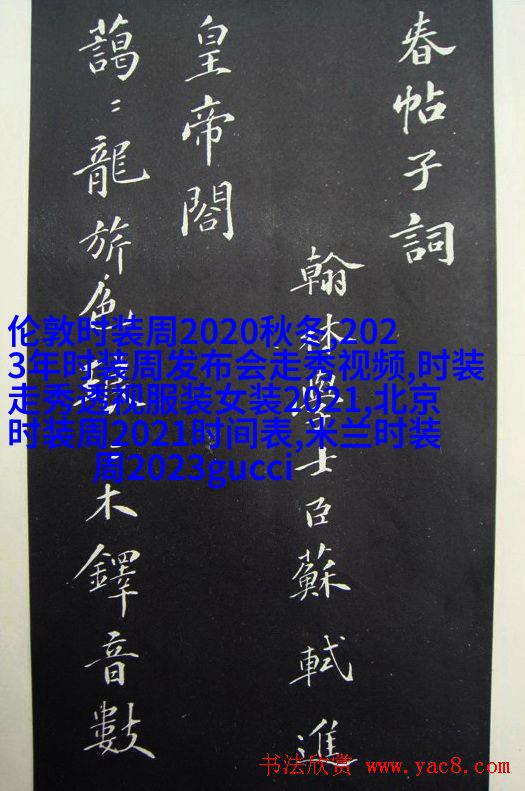 春帖子詞
翰林學士臣蘇軾進
皇帝閣
藹〻龍旂色木鐸音數
伦敦时装周2020秋冬,202
3年时装周发布会走秀视频,时装
走秀透视服装女装2021,北京
时装周2021时间表,米兰时装
周2023gucci
书法欣赏 www.yac8.com